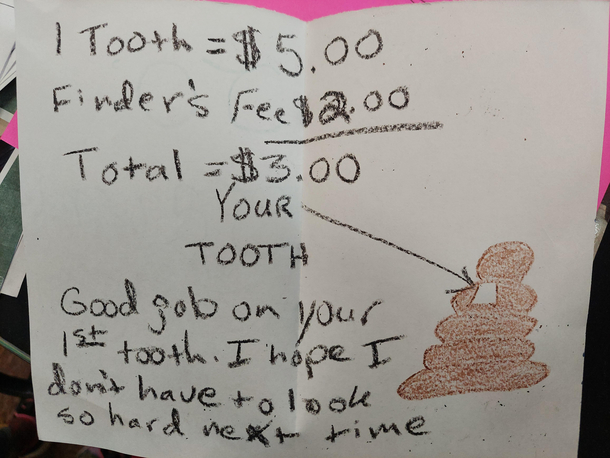 1 Tooth = $5.00
Finder's Fee $2.00
Total = $3.00
YOUR
TOOTH
Good gob on your
1st tooth. I hope I
don't have to look
so hard next time